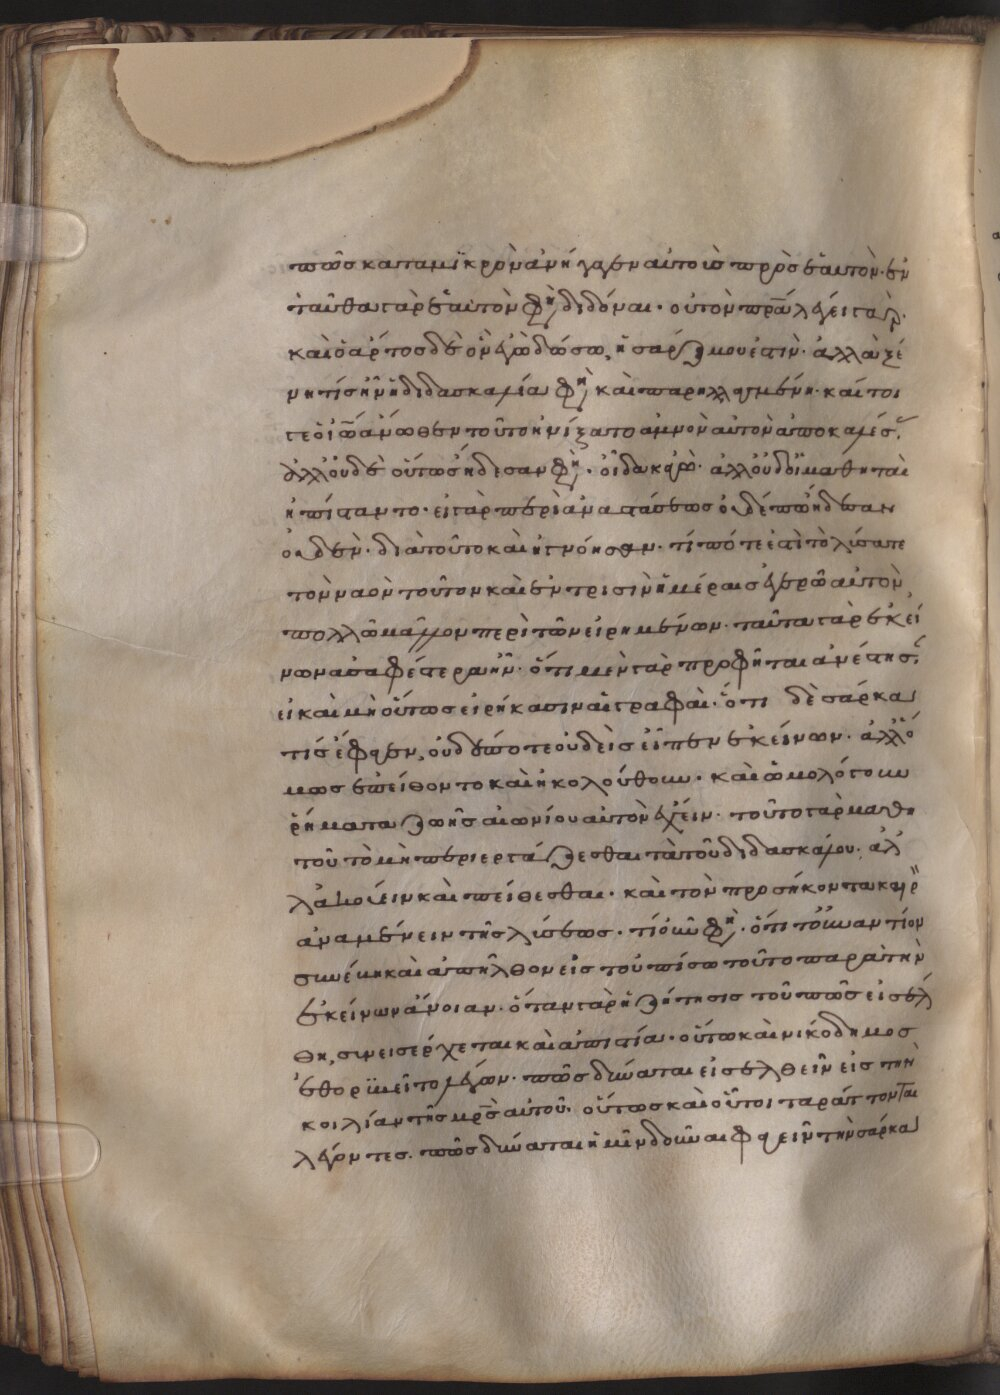 πῶς καταμϊκρὸν ἀνήγαγεν αὐτοὺς πρὸς ἑαυτόν· ἐν
ταῦθα γὰρ ἑαυτὸν φη(σι) διδόναι· οὐ τὸν πρ̅α̅ λέγει γάρ·
καὶ ὁ ἄρτος δὲ ὃν ἐγὼ δώσω, ἡ σάρξ μου ἐστίν· ἀλλὰ ξέ
νη τίς ἦν ἡ διδασκαλία φη(σι) καὶ παρηλλαγμένη· καίτοι
γε ὁ ἰω̅ ἄνωθεν τοῦτο ἠνίξατο ἀμνὸν αὐτὸν ἀποκαλέσ(ας)·
ἀλλ' οὐδὲ οὕτως ἤδεσαν φη(σι)· οἶδα κἀγώ· ἀλλ' οὐδ' οἱ μαθηταὶ
ἠπίσταντο· εἰ γὰρ περὶ ἀναστάσεως οὐδέπω ἤδεσαν
οὐδέν· διὰ τοῦτο καὶ ἠγνόησαν· τί πότε ἐστὶ τὸ λύσατε
τὸν ναὸν τοῦτον καὶ ἐν τρισὶν ἡμέραις ἐγερῶ αὐτόν
πολλῷ μᾶλλον περὶ τῶν εἰρημένων· ταῦτα γὰρ ἐκεί
νων ἀσαφέστερα ἦν· ὅτι μὲν γὰρ προφῆται ἀνέστησ(αν)
εἰ καὶ μὴ οὕτως εἰρήκασιν αἱ γραφαί· ὅτι δὲ σάρκα
τίς ἔφαγεν, οὐδεπώποτε οὐδεὶς εἶπεν ἐκείνων· ἀλλ' ὅ
μως ἐπείθοντο καὶ ἠκολούθουν· καὶ ὡμολόγουν
ῥήματα ζωῆς αἰωνίου αὐτὸν ἔχειν· τοῦτο γὰρ μαθη
τοῦ τὸ μὴ περιεργάζεσθαι τὰ τοῦ διδασκάλου· ἀλ
λὰ ἀκούειν καὶ πείθεσθαι· καὶ τὸν προσήκοντα καιρ(ὸν)
ἀναμένειν τῆς λύσεως· τί οὖν φη(σι)· ὅτι τοὐναντίον
συνέβη καὶ ἀπῆλθον εἰς τοὐπίσω τοῦτο παρὰ τὴν
ἐκείνων ἄνοιαν· ὅταν γὰρ ἡ ζήτησις τοῦ πῶς εἰσέλ
θη, συνεισέρχεται καὶ ἀπιστία· οὕτω καὶ νικόδημος
ἐθορυβεῖτο λέγων· πῶς δύναται εἰσελθεῖν εἰς τὴν
κοιλίαν τῆς μρ̅ς̅ αὐτοῦ· οὕτως καὶ οὗτοι ταράττονται
λέγοντες· πῶς δύναται ἡμῖν δοῦναι φαγεῖν τὴν σάρκα